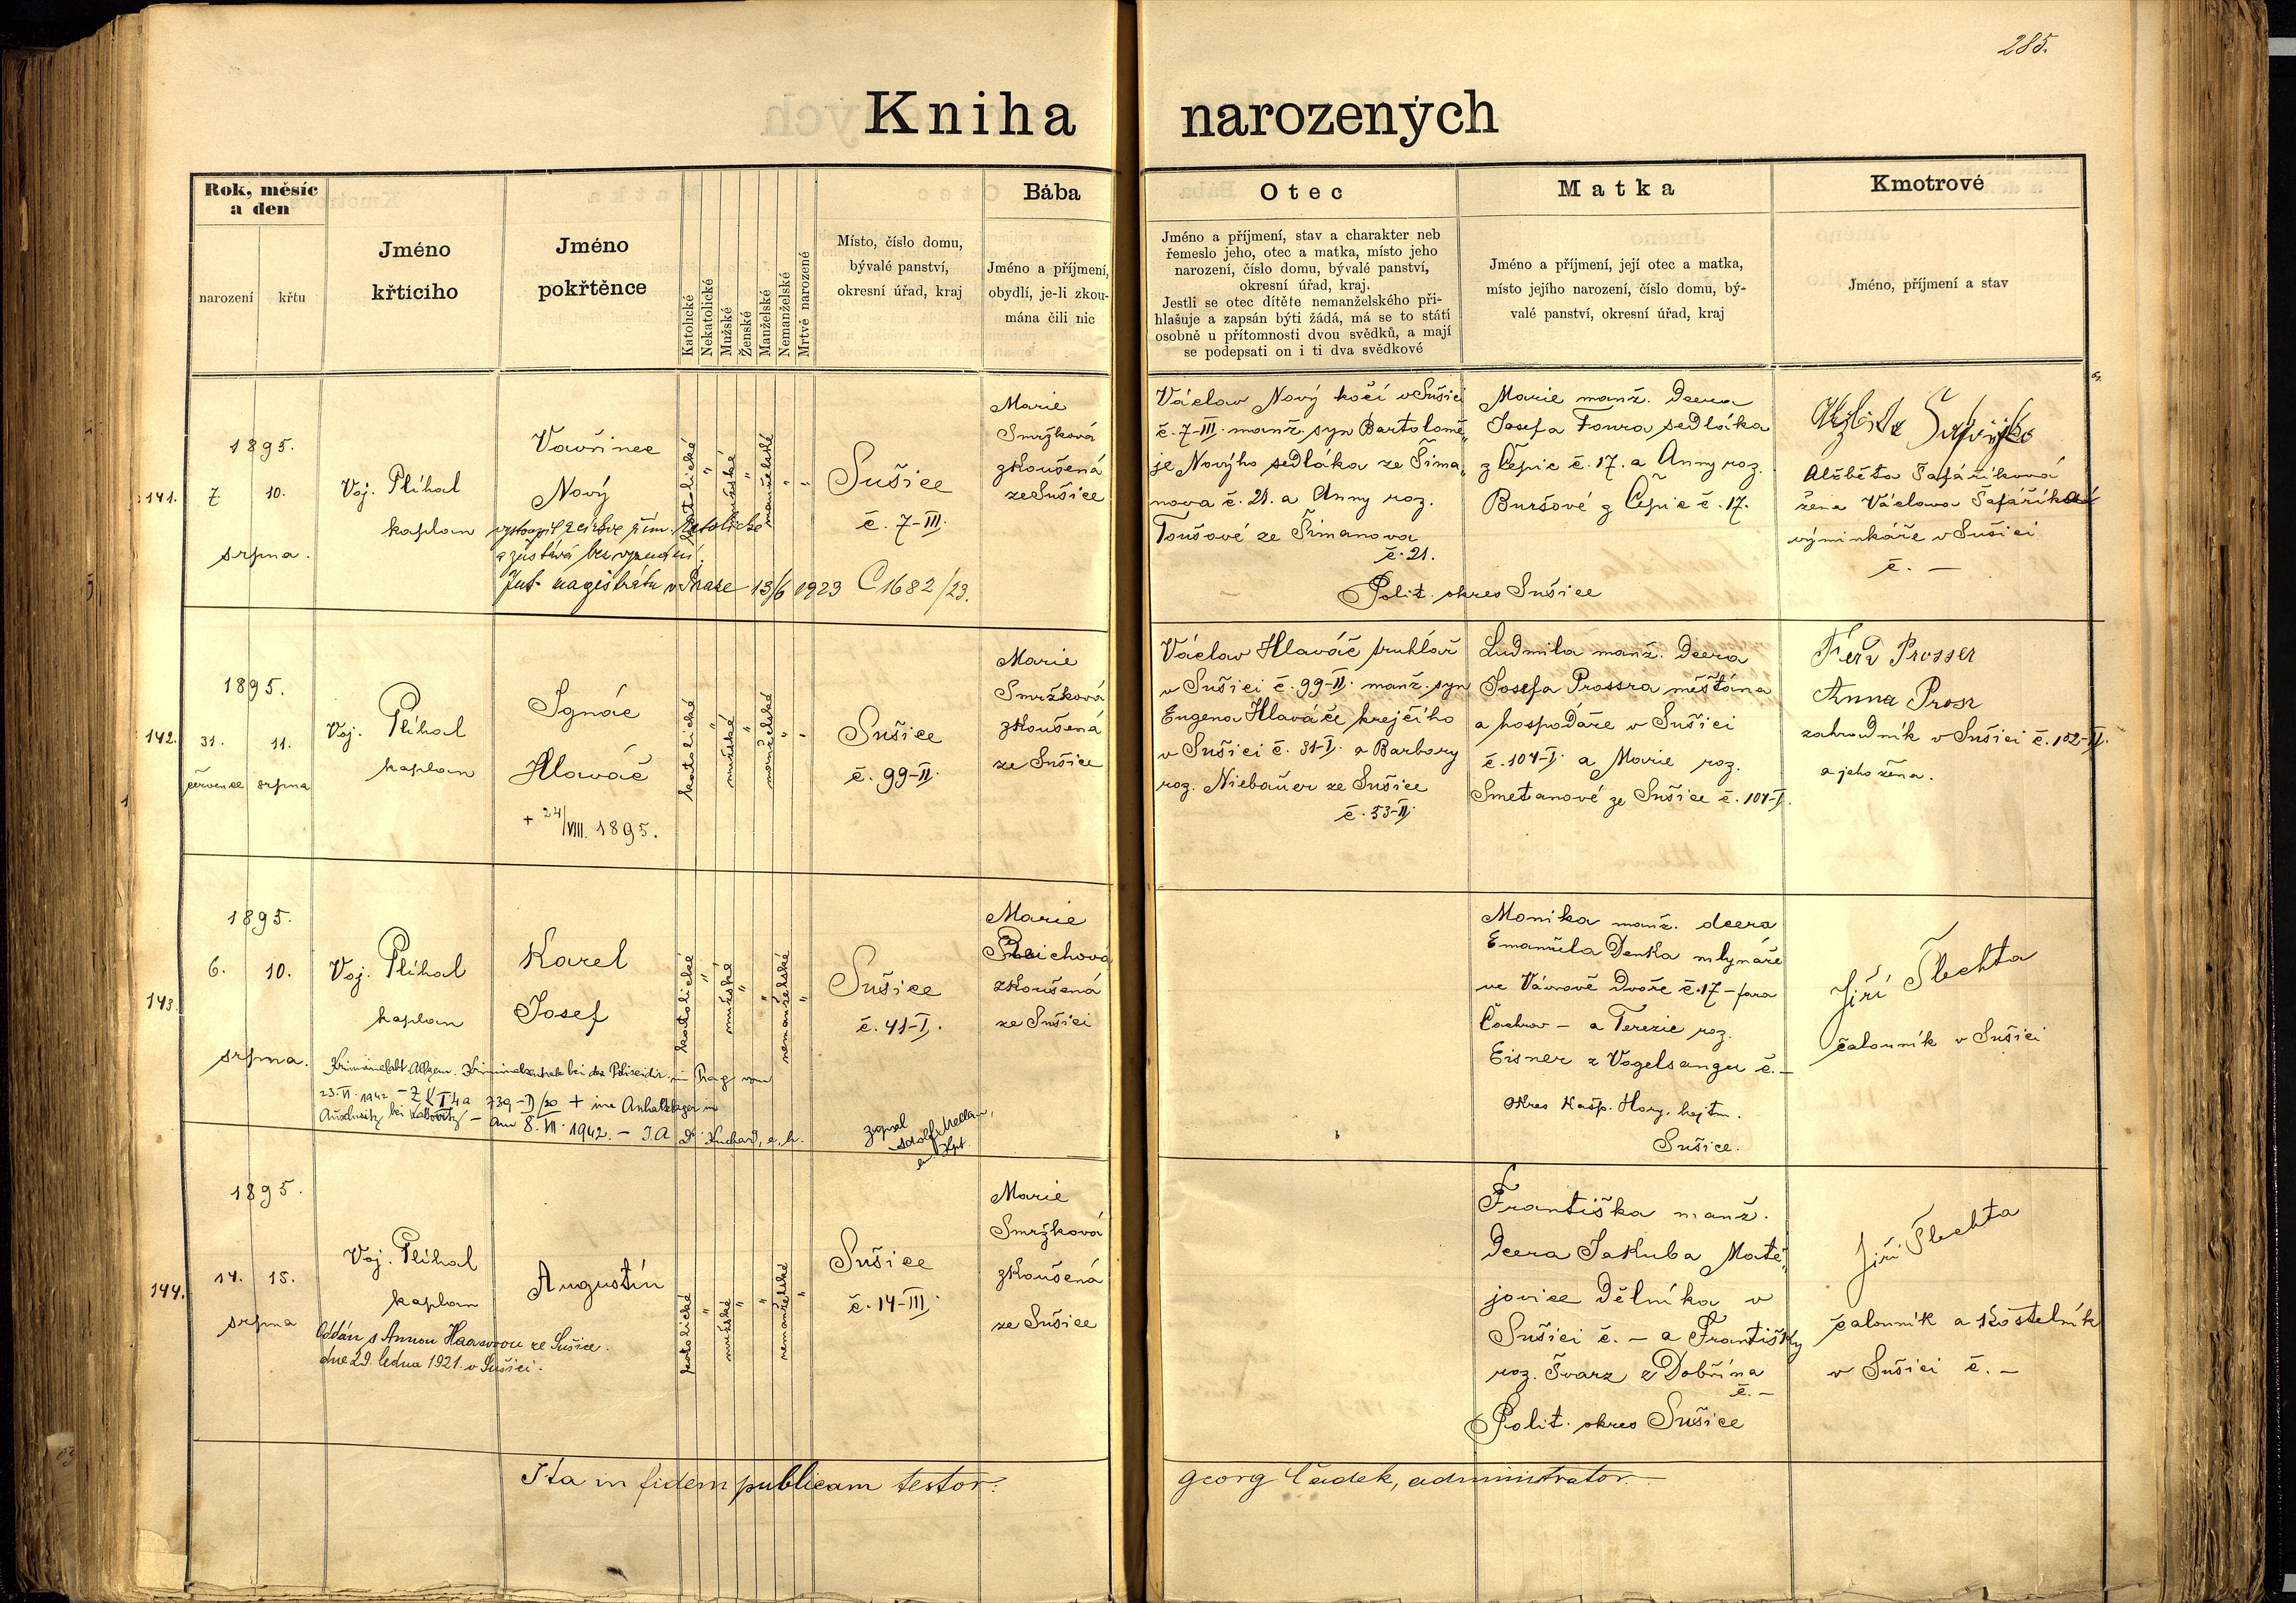 285.
Kniha narozených
Rok, měsíc
a den
narození
křtu
Jméno
křticiho
Jméno
pokřtěnce
Katolické
Nekatolické
Mužské
Ženské
Manželské
Nemanželské
Mrtvě narozené
Místo, číslo domu,
bývalé panství,
okresní úřad, kraj
Bába
Jméno a příjmení,
obydlí, je-li zkou-
mána čili nic
Otec
Jméno a příjmení, stav a charakter neb
řemeslo jeho, otec a matka, místo jeho
narození, číslo domu, bývalé panství,
okresní úřad, kraj.
Jestli se otec dítěte nemanželského při-
hlašuje a zapsán býti žádá, má se to státi
osobně u přítomnosti dvou svědků, a mají
se podepsati on i ti dva svědkové
Matka
Jméno a příjmení, její otec a matka,
místo jejího narození, číslo domu, bý-
valé panství, okresní úřad, kraj
Kmotrové
Jméno, příjmení a stav
141.
1895.
7. 10.
srpna.
Voj. Plíhal
kaplan
Vavřinec
Nový
vystoupil z církve řím. katolické
a zůstává bez vyznání.
magistrátu v Praze 13/6 1923 C 1682/23.
katolické
"
mužské
"
manželské
"
"
Sušice
č. 7-III.
Marie
Smržková
zkoušená
ze Sušice
Václav Nový kočí v Sušici
č. 7-III. manž. syn Bartolomě„
je Nového sedláka ze Šima„
nova č. 21. a Anny roz.
Toušové ze Šimanova
č. 21.
Marie manž. dcera
Josefa Foura sedláka
z Čepic č. 17. a Anny roz.
Buršové z Čepic č. 17.
Polit. okres Sušice
Alžběta Šafaříková
žena Václava Šafaříka
výminkáře v Sušici
č. —
142.
1895.
31. 11.
července srpna
Voj. Plíhal
kaplan
Ignác
Hlaváč
+ 24/VIII. 1895.
katolické
"
mužské
"
manželské
"
"
Sušice
č. 99-II.
Marie
Smržková
zkoušená
ze Sušice
Václav Hlaváč truhlář
v Sušici č. 99-II. manž. syn
Eugena Hlaváče krejčího
v Sušici č. 31-I. a Barbory
roz. Niebauer ze Sušice
č. 53-II.
Ludmila manž. dcera
Josefa Prossra měšťana
a hospodáře v Sušici
č. 104-I. a Marie roz.
Smetanové ze Sušice č. 104-I.
Ferd Prosser
Anna Prosr
zahradník v Sušici č. 102-II.
a jeho žena.
143.
1895.
6. 10.
srpna.
Voj. Plíhal
kaplan
Karel
Josef
Kriminalabt. Allgem. Kriminalzentrale bei der Polizeidir. in Prag vom
23. VI. 1942 739-I/20 + im Anhaltelager in
Auschwitz bei Kattowitz - am 8. VI. 1942. - J.A. Dr. Kuchař, e. h.
zapsal
katolické
"
mužské
"
"
nemanželské
"
Sušice
č. 41-I.
Marie
Reichová
zkoušená
ze Sušici
Monika manž. dcera
Emanuela Denka mlynáře
ve Vávrově Dvoře č. 17 - fara
Čachrov - a Terezie roz.
Eisner z Vogelsangu č. —
okres Kašp. Hory. hejtm.
Sušice.
Jiří Šlechta
čalouník v Sušici
144.
1895.
14. 15.
srpna
Voj. Plíhal
kaplan
Augustín
Oddán s Annou Haasovou ze Sušice.
dne 29. ledna 1921. v Sušici.
katolické
"
mužské
"
"
nemanželské
"
Sušice
č. 14-III.
Marie
Smržková
zkoušená
ze Sušice
Františka manž.
dcera Jakuba Matě„
jovice dělníka v
Sušici č. — a Františky
roz. Švarz z Dobřína
č. —
Polit. okres Sušice
Jiří Šlechta
čalouník a kostelník
v Sušici č. —
Ita in fidem publicam testor:
Georg Čadek, administrator.